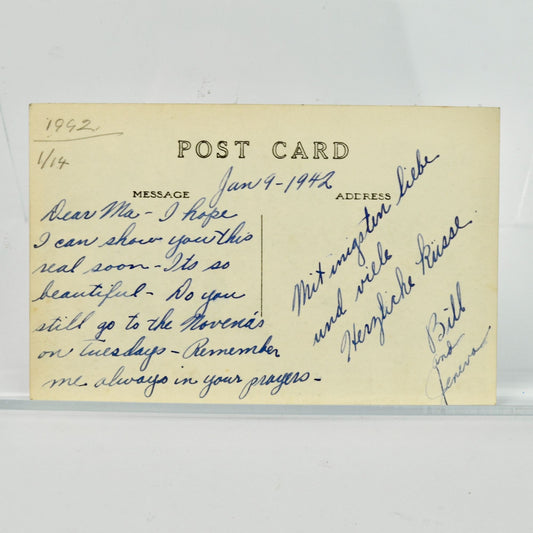 1942
1/14
POST CARD
Jan 9-1942
MESSAGE
ADDRESS
Dear Ma - I hope
I can show you this
real soon - Its so
beautiful - Do you
still go to the Novena's
on Tuesdays - Remember
me always in your prayers -
Mit inigsten liebe
und ville
Herzliche Küsse
Bill
and
Geneva